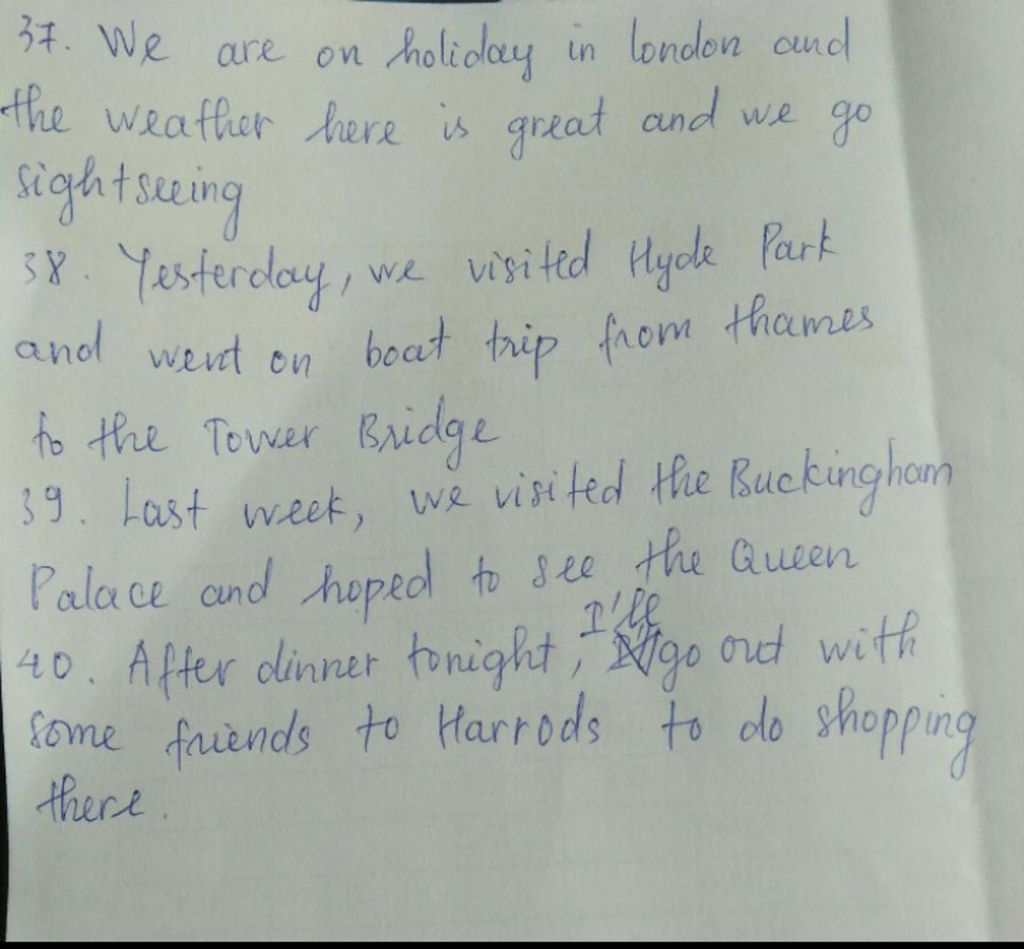 37. We are on holiday in london and
the weather here is great and we go
sightseeing
38. Yesterday, we visited Hyde Park
and went on boat trip from thames
to the Tower Bridge
39. Last week, we visited the Buckingham
Palace and hoped to see the Queen
40. After dinner tonight, I'll go out with
some friends to Harrods to do shopping
there.